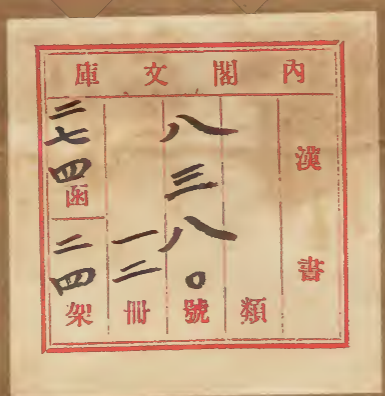 內閣文庫
漢書
類
八三八〇號
一二冊
二七四函
二四架